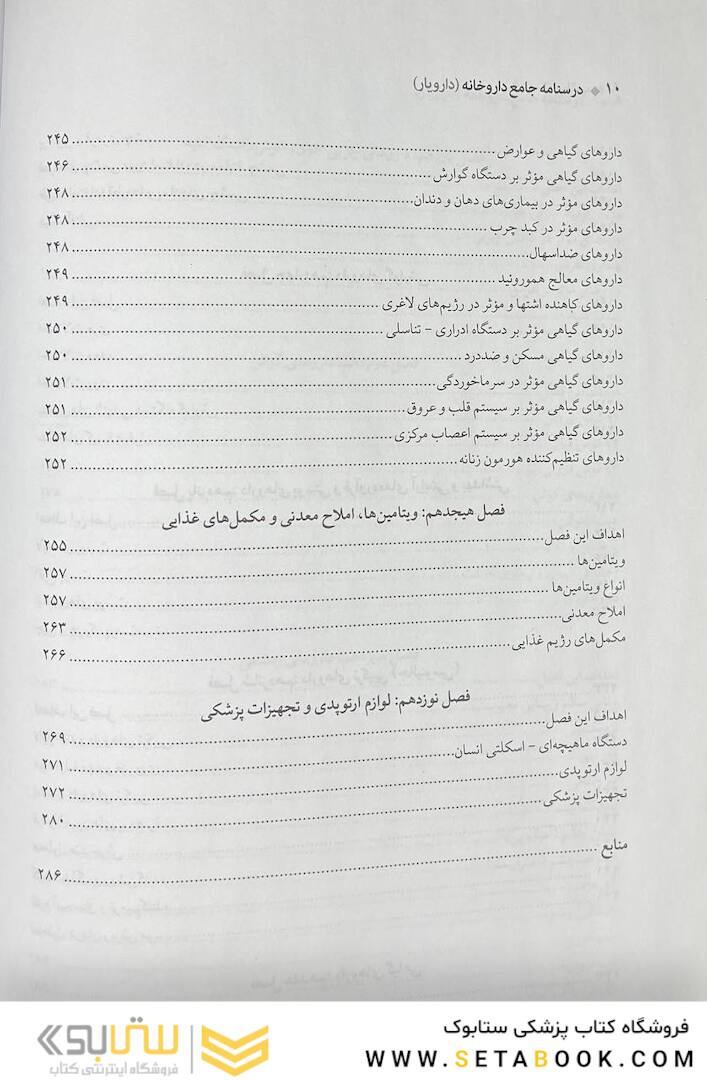 ۱۰ ◆ درسنامه جامع داروخانه (دارویار)
داروهای گیاهی و عوارض ........ ۲۴۵
داروهای گیاهی مؤثر بر دستگاه گوارش ........ ۲۴۶
داروهای مؤثر در بیماری‌های دهان و دندان ........ ۲۴۸
داروهای مؤثر در کبد چرب ........ ۲۴۸
داروهای ضداسهال ........ ۲۴۸
داروهای معالج هموروئید ........ ۲۴۹
داروهای کاهنده اشتها و مؤثر در رژیم‌های لاغری ........ ۲۴۹
داروهای گیاهی مؤثر بر دستگاه ادراری – تناسلی ........ ۲۵۰
داروهای گیاهی مسکن و ضددرد ........ ۲۵۰
داروهای گیاهی مؤثر در سرماخوردگی ........ ۲۵۱
داروهای گیاهی مؤثر بر سیستم قلب و عروق ........ ۲۵۱
داروهای گیاهی مؤثر بر سیستم اعصاب مرکزی ........ ۲۵۲
داروهای تنظیم‌کننده هورمون زنانه ........ ۲۵۲
فصل هیجدهم: ویتامین‌ها، املاح معدنی و مکمل‌های غذایی
اهداف این فصل ........ ۲۵۵
ویتامین‌ها ........ ۲۵۷
انواع ویتامین‌ها ........ ۲۵۷
املاح معدنی ........ ۲۶۳
مکمل‌های رژیم غذایی ........ ۲۶۶
فصل نوزدهم: لوازم ارتوپدی و تجهیزات پزشکی
اهداف این فصل ........ ۲۶۹
دستگاه ماهیچه‌ای – اسکلتی انسان ........ ۲۷۱
لوازم ارتوپدی ........ ۲۷۲
تجهیزات پزشکی ........ ۲۸۰
منابع ........ ۲۸۶
فروشگاه کتاب پزشکی ستابوک
WWW.SETABOOK.COM
ستابوک
فروشگاه اینترنتی کتاب